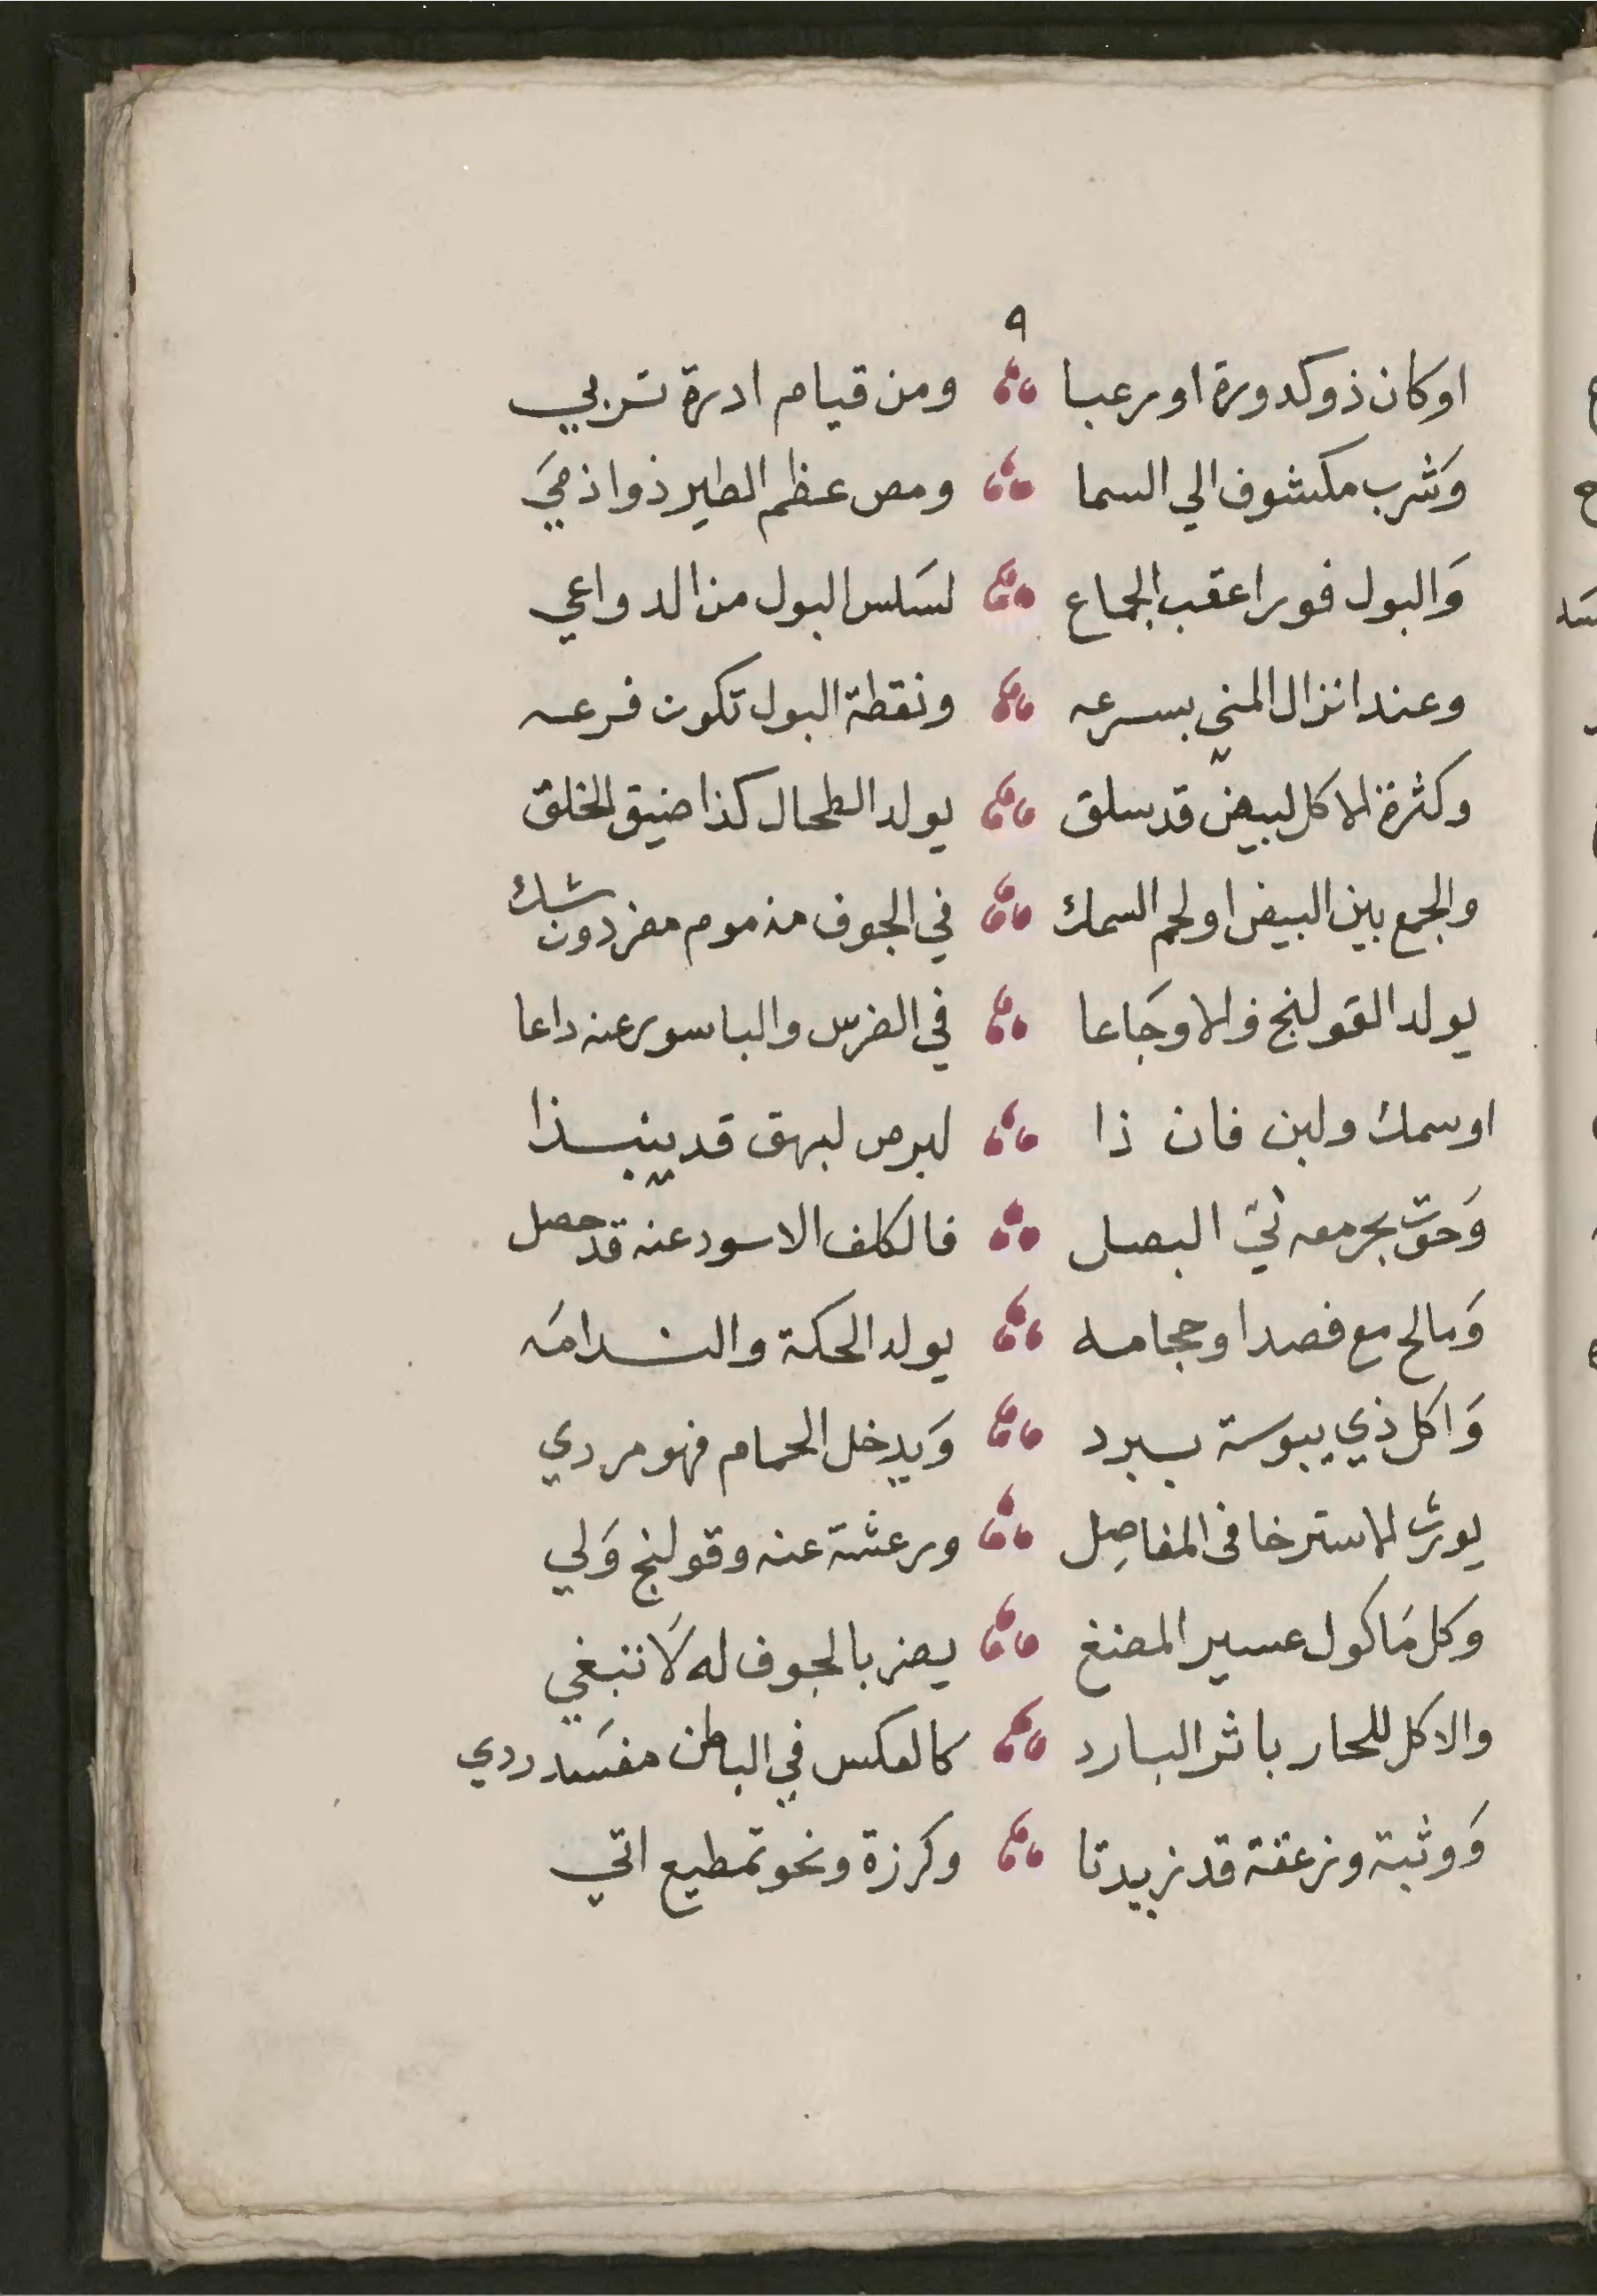 ٩
اوكان ذوكدورة اورعبا ومن قيام ادرة تربي
وَشرب مكشوف الي السما ومص عظم الطير ذوا ذميَ
وَالبول فورا عقب الجماع لسَلس البول من الدواعي
وعند انزال المني بسرعه ونقطة البول تكون فرعه
وكثرة الاكل لبيض قد سلق يولد الطحال كذا ضيق الخلق
والجمع بين البيض اولحم السمك في الجوف مذموم مضر دون شك
يولد القولنج والاوجَاعا في الضرس والباسور عنه داعا
اوسمك ولبن فان ذا لبرص لبهق قد ينبذا
وَحوت بحر معه نيّ البصل فالكلف الاسود عنه قد حصل
وَمالح مع فصد اوحجامه يولد الحكة والندامَه
وَاكل ذي يبوسة ببرد وَيدخل الحمام فهو مردي
يورث الاسترخا في المفاصِل ورعشة عنه وقولنج وَلي
وكل مَاكول عسير المضغ يضر بالجوف له لَا تنبغي
والاكل للحار باثر البارد كالعكس في الباطن مفسَد ردي
وَوثبة وزعقة قد زيدتا وكرزة ونحو تمطيع اتي